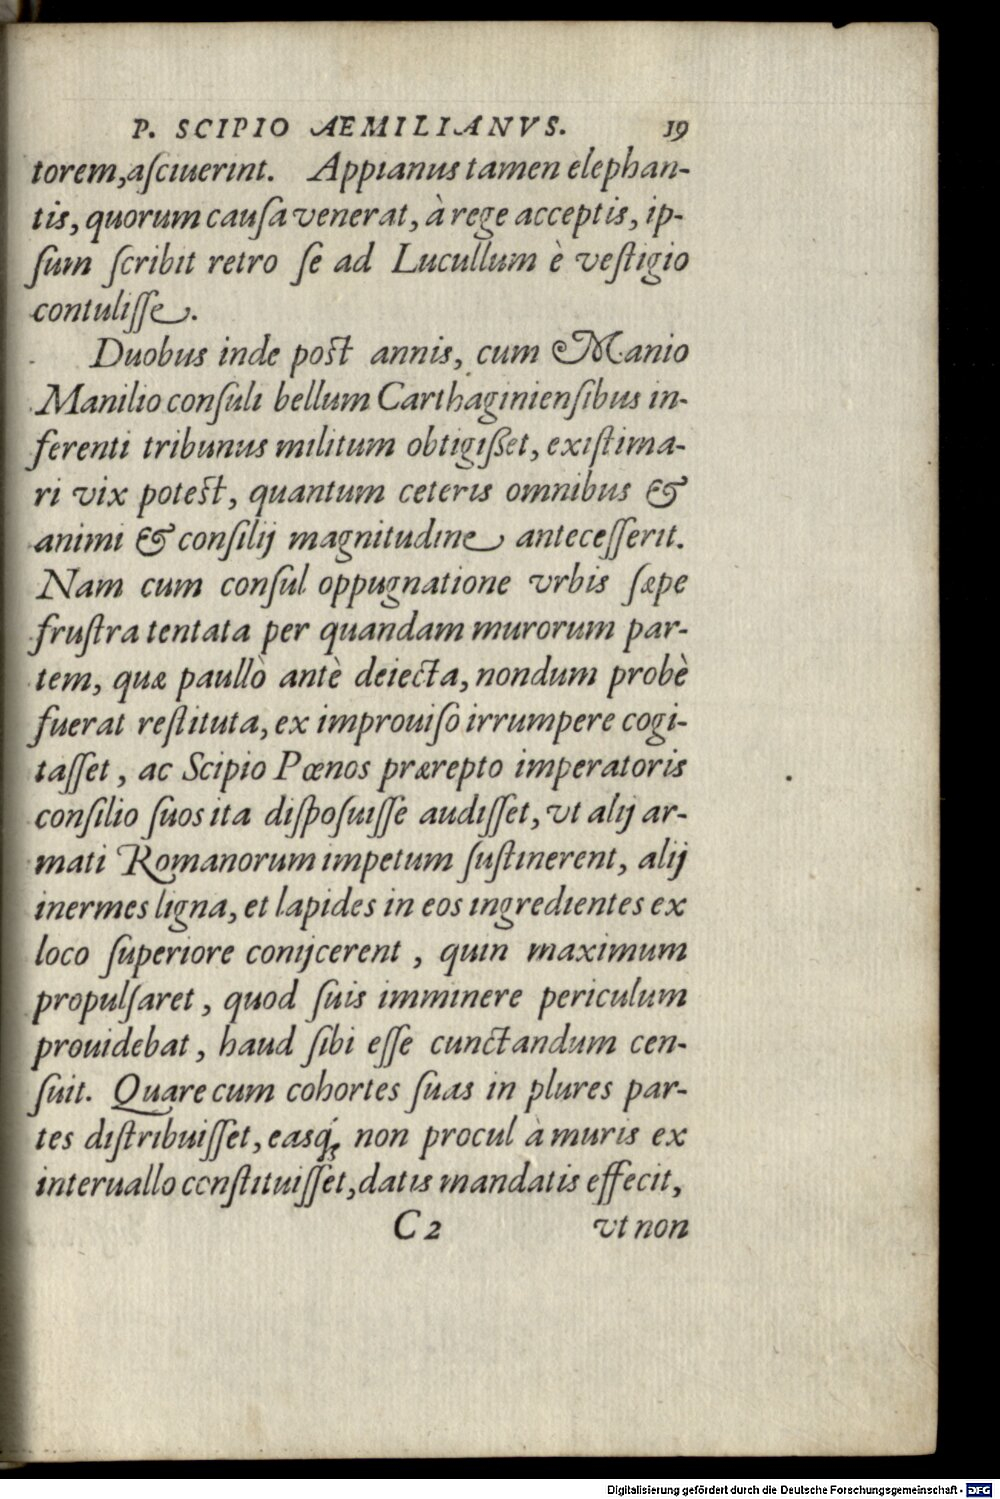 P. SCIPIO AEMILIANVS. 19
torem, aſciuerint. Appianus tamen elephan-
tis, quorum cauſa venerat, à rege acceptis, ip-
ſum ſcribit retro ſe ad Lucullum è veſtigio
contuliſſe.
Duobus inde post annis, cum Manio
Manilio conſuli bellum Carthaginienſibus in-
ferenti tribunus militum obtigißet, exiſtima-
ri vix potest, quantum ceteris omnibus &
animi & conſilij magnitudine anteceſſerit.
Nam cum conſul oppugnatione vrbis ſæpe
fruſtra tentata per quandam murorum par-
tem, quæ paullò antè deiecta, nondum probè
fuerat reſtituta, ex improuiſo irrumpere cogi-
taſſet, ac Scipio Pœnos prærepto imperatoris
conſilio ſuos ita diſpoſuiſſe audiſſet, vt alij ar-
mati Romanorum impetum ſuſtinerent, alij
inermes ligna, et lapides in eos ingredientes ex
loco ſuperiore conijcerent, quin maximum
propulſaret, quod ſuis imminere periculum
prouidebat, haud ſibi eſſe cunctandum cen-
ſuit. Quare cum cohortes ſuas in plures par-
tes diſtribuiſſet, easq́; non procul à muris ex
interuallo conſtituiſſet, datis mandatis effecit,
C 2 vt non
Digitalisierung gefördert durch die Deutsche Forschungsgemeinschaft - DFG